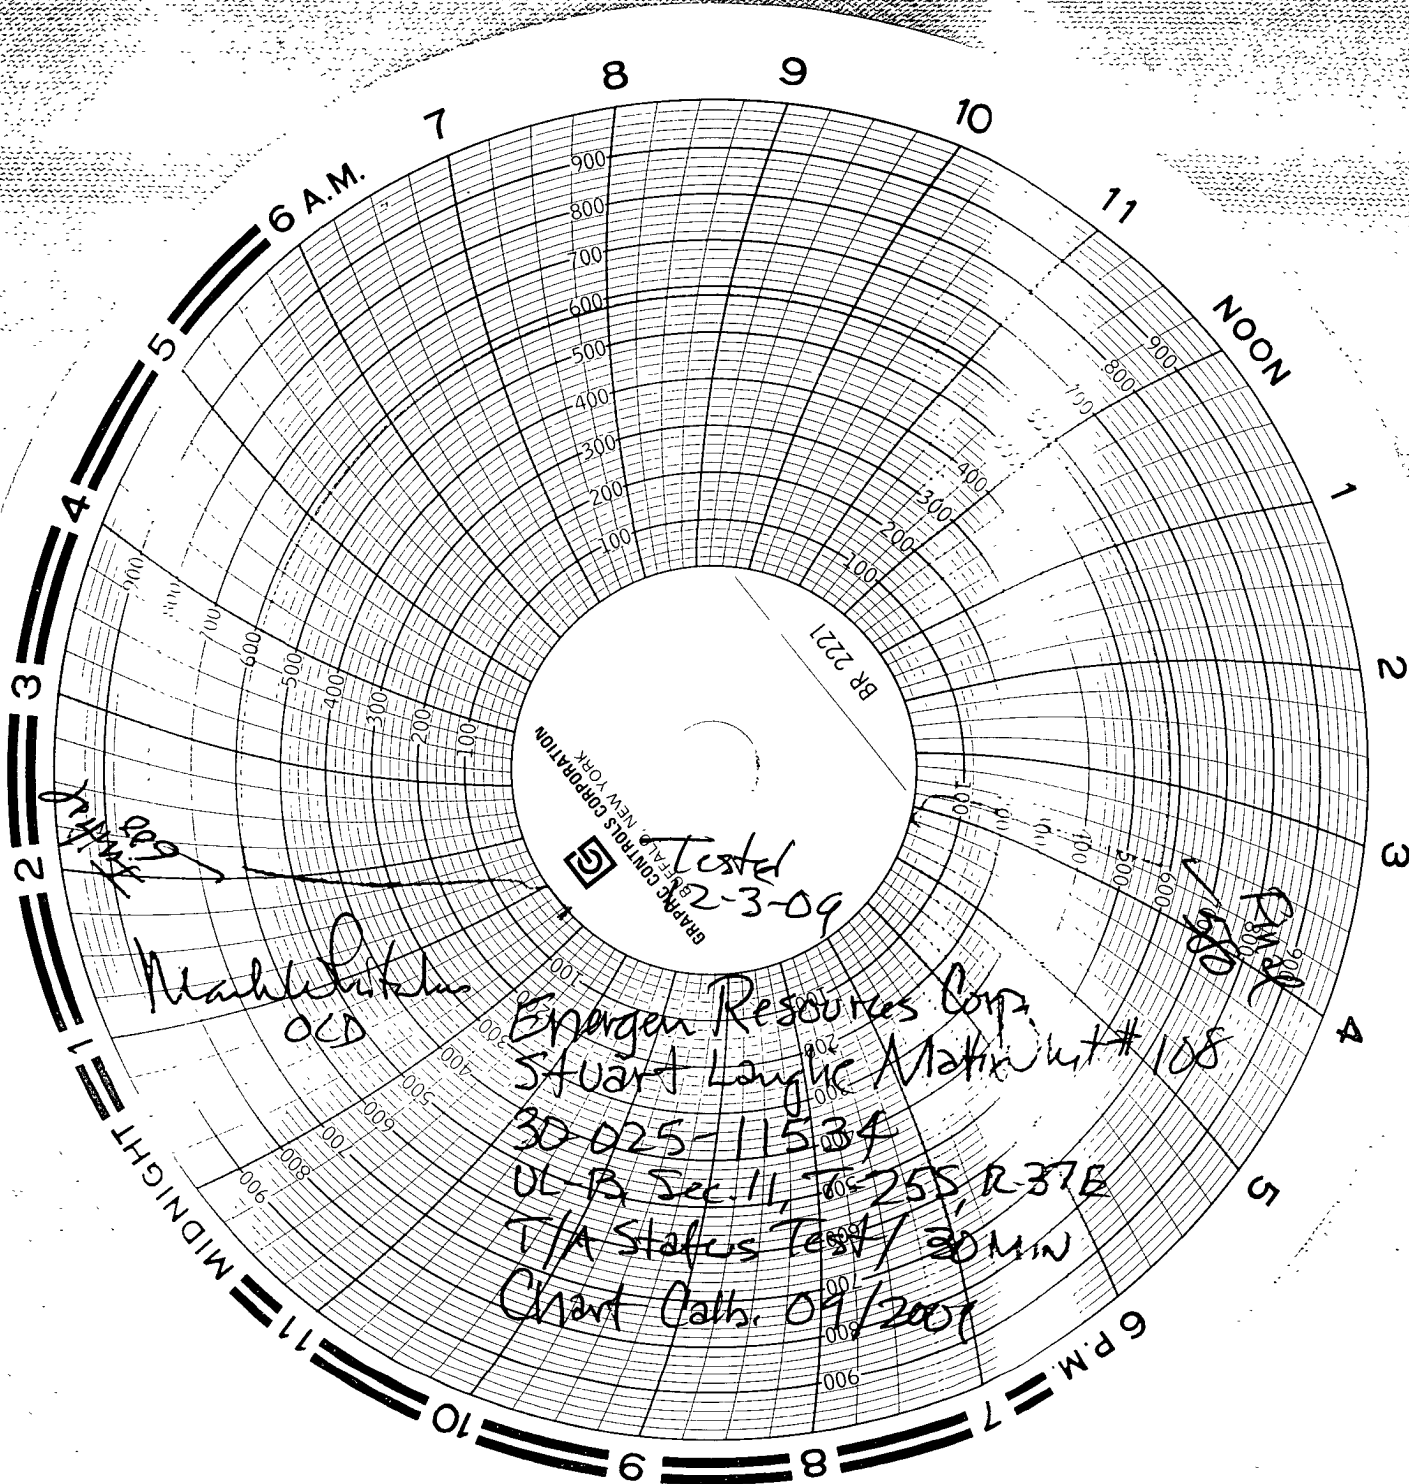 8
9
10
11
NOON
1
2
3
4
5
6 P.M.
7
8
9
10
11
MIDNIGHT
1
2
3
4
5
6 A.M.
7
900
800
700
600
500
400
300
200
100
900
800
700
400
300
200
100
900
800
700
600
500
400
300
200
100
100
500
600
800
900
100
200
300
400
500
600
700
800
900
100
200
300
500
600
700
800
900
BR 2221
GRAPHIC CONTROLS CORPORATION
BUFFALO, NEW YORK
Tested
12-3-09
Start
600
Final
580
OCD
Energen Resources Corp.
Stuart Langlie Mattix Unit # 108
30-025-11534
UL-B, Sec. 11, T-25S, R-37E
T/A Status Test / 30 MIN
Chart Calb. 09/2009